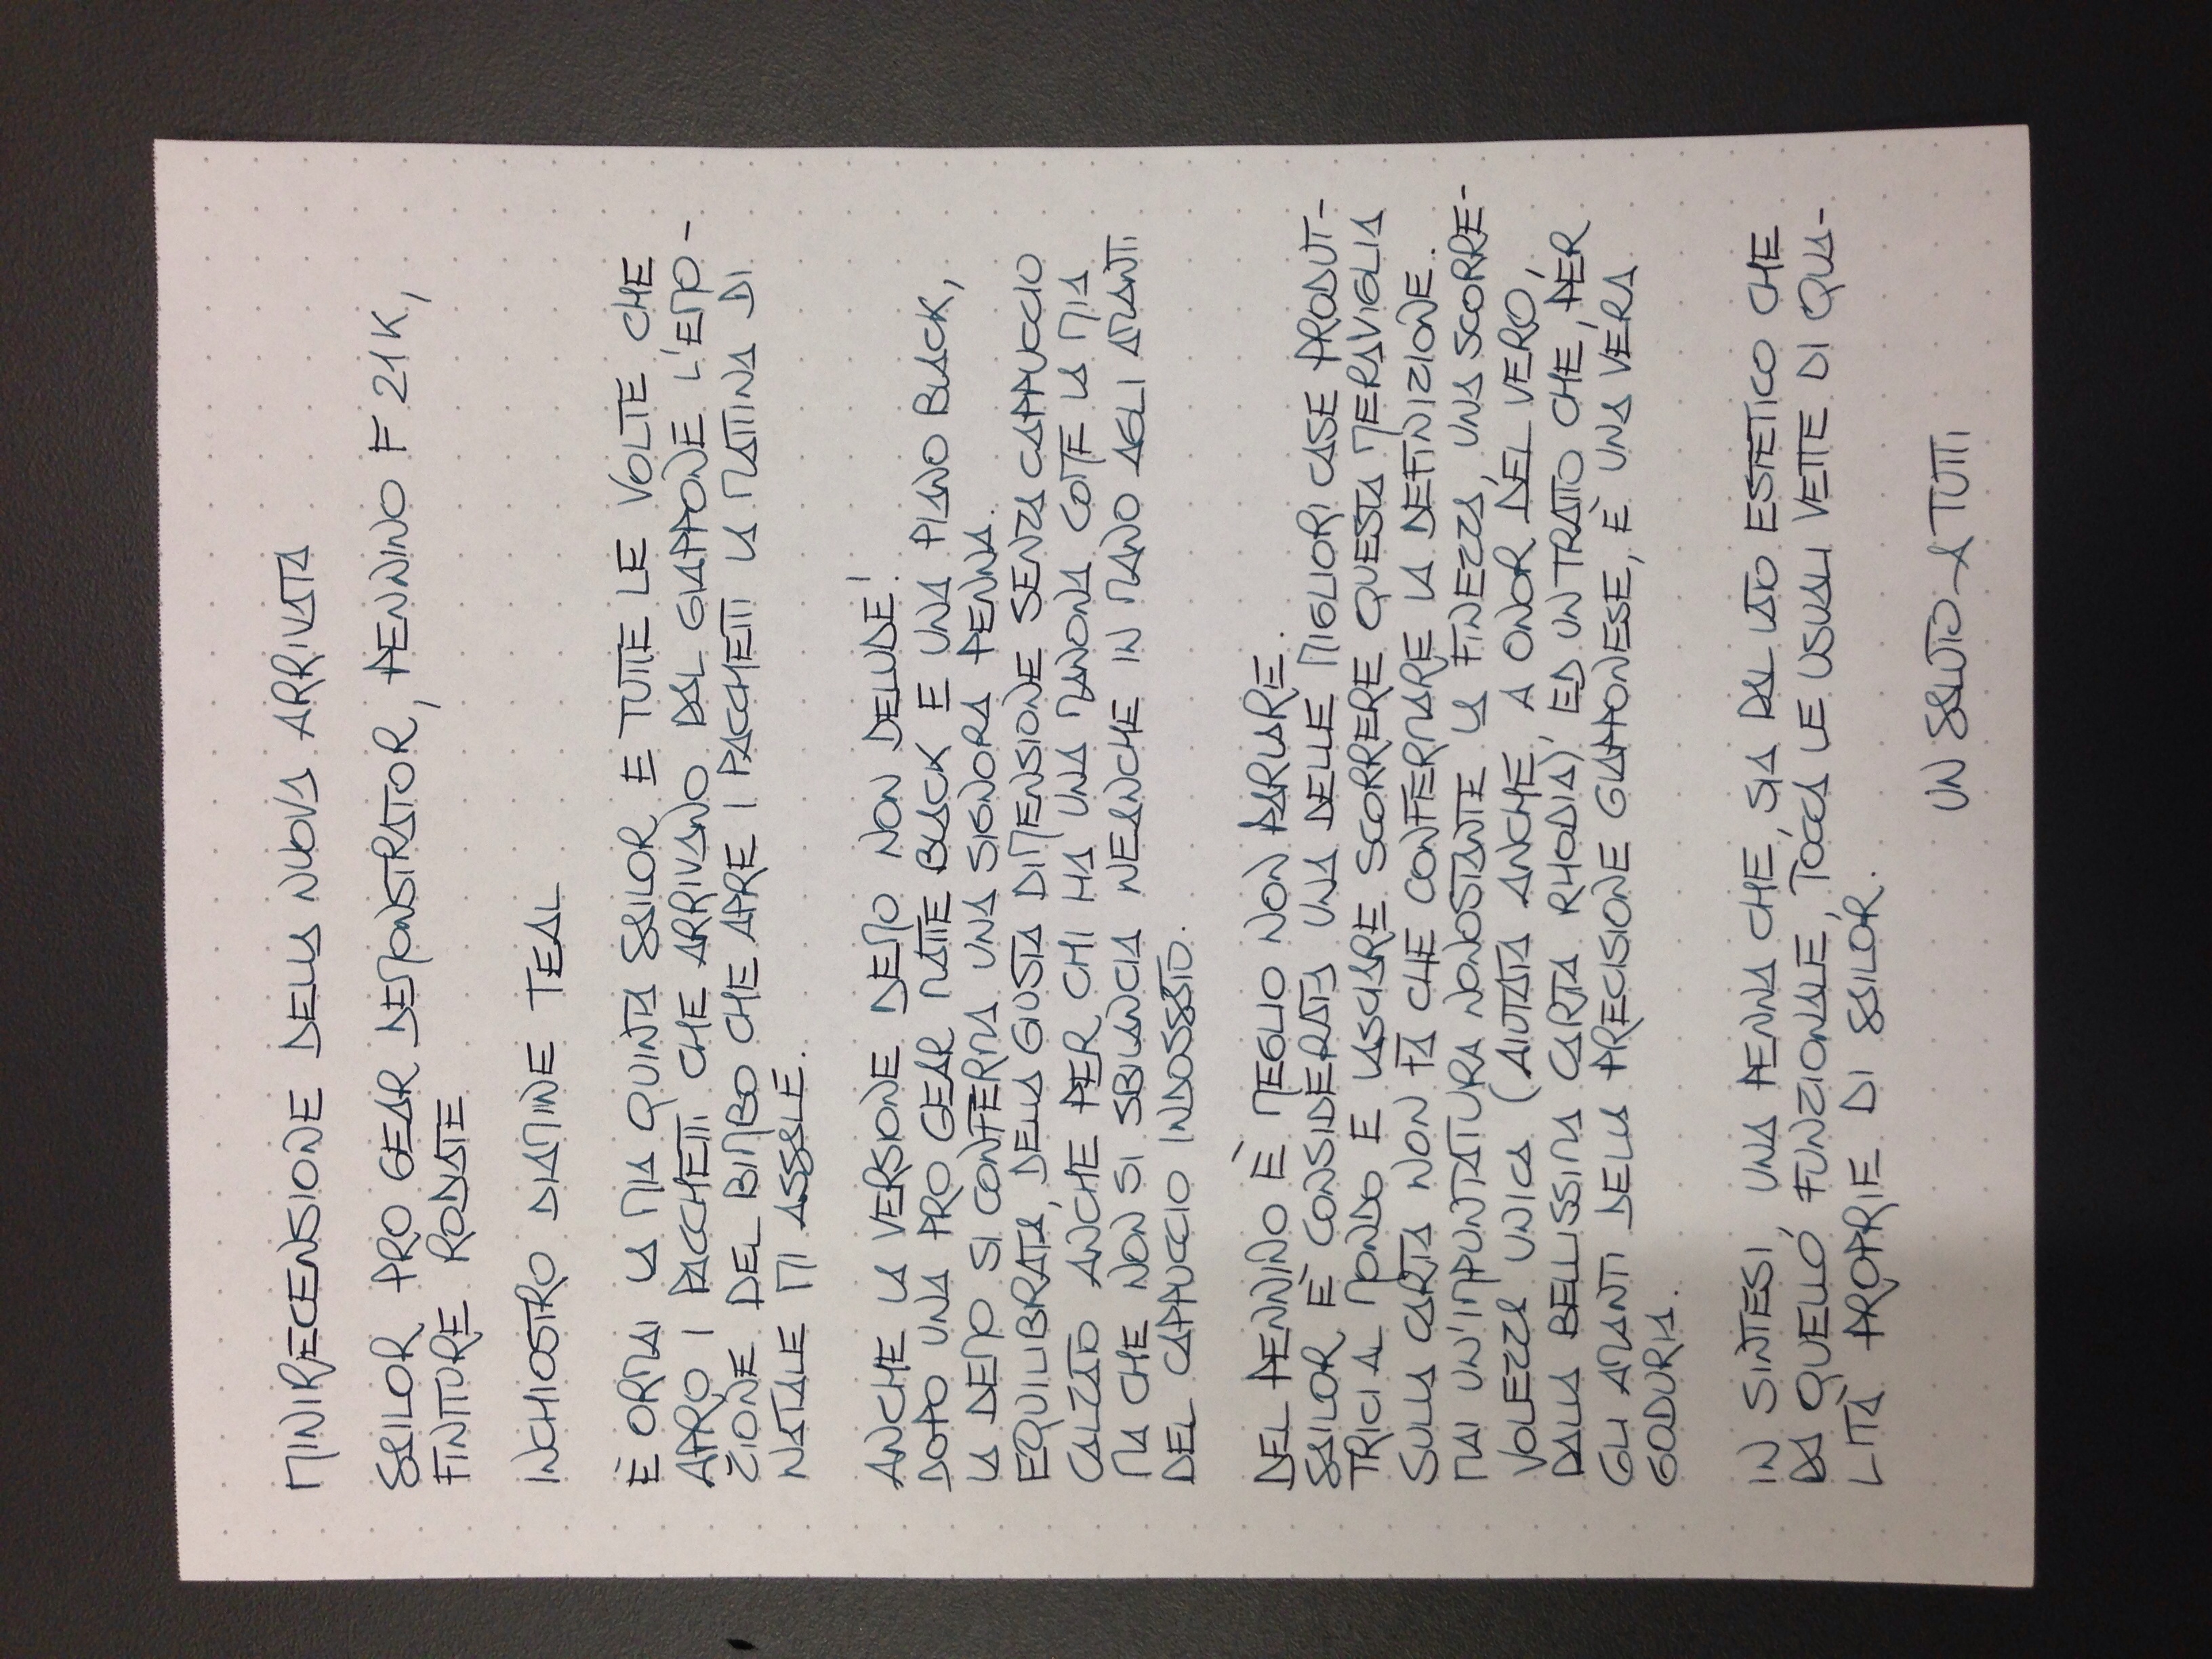 MINIRECENSIONE DELLA NUOVA ARRIVATA
SAILOR PRO GEAR DEMONSTRATOR, PENNINO F 21K,
FINITURE RODATE
INCHIOSTRO DIAMINE TEAL
È ORMAI LA MIA QUINTA SAILOR E TUTTE LE VOLTE CHE
APRO I PACCHETTI CHE ARRIVANO DAL GIAPPONE L'EMO-
ZIONE DEL BIMBO CHE APRE I PACCHETTI LA MATTINA DI
NATALE MI ASSALE.
ANCHE LA VERSIONE DEMO NON DELUDE!
DOPO UNA PRO GEAR MATTE BLACK E UNA PIANO BLACK,
LA DEMO SI CONFERMA UNA SIGNORA PENNA.
EQUILIBRATA, DELLA GIUSTA DIMENSIONE SENZA CAPPUCCIO
CALZATO ANCHE PER CHI HA UNA MANONA COME LA MIA
MA CHE NON SI SBILANCIA NEANCHE IN MANO AGLI AMANTI
DEL CAPPUCCIO INDOSSATO.
DEL PENNINO È MEGLIO NON PARLARE.
SAILOR È CONSIDERATA UNA DELLE MIGLIORI CASE PRODUT-
TRICI AL MONDO E LASCIARE SCORRERE QUESTA MERAVIGLIA
SULLA CARTA NON FA CHE CONFERMARE LA DEFINIZIONE.
MAI UN'IMPUNTATURA NONOSTANTE LA FINEZZA, UNA SCORRE-
VOLEZZA UNICA (AIUTATA ANCHE, A ONOR DEL VERO,
DALLA BELLISSIMA CARTA RHODIA), ED UN TRATTO CHE, PER
GLI AMANTI DELLA PRECISIONE GIAPPONESE, È UNA VERA
GODURIA.
IN SINTESI, UNA PENNA CHE, SIA DAL LATO ESTETICO CHE
DA QUELLO FUNZIONALE, TOCCA LE USUALI VETTE DI QUA-
LITÀ PROPRIE DI SAILOR.
UN SALUTO A TUTTI